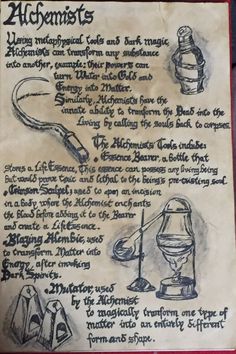 Alchemists
Using metaphysical tools and dark magic,
Alchemists can transform any substance
into another, example: their powers can
turn Water into Gold and
Energy into Matter.
Similarly, Alchemists have the
innate ability to tranform the Dead into the
Living by calling the souls back to corpses.
The Alchemists Tools include:
• Essence Bearer, a bottle that
stores a Life Essence, This essence can possess any living being
but would prove toxic and lethal to the being's pre-existing soul.
• Crimson Scalpel, used to open an incision
in a body where the Alchemist enchants
the blood before adding it to the Bearer
and create a Life Essence.
• Blazing Alembic, used
to transform Matter into
Energy, after invoking
Dark Spirits.
• Mutator, used
by the Alchemist
to magically tranform one type of
matter into an entirly different
form and shape.